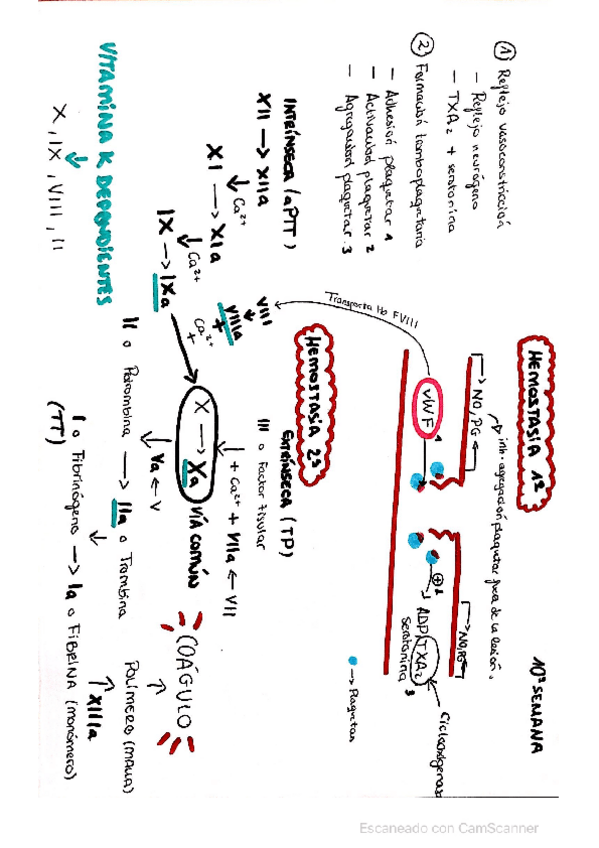 10ª SEMANA
HEMOSTASIA 1ª
① Reflejo vasoconstricción
- Reflejo neurógeno
- TXA2 + serotonina
② Formación trombo plaquetario
- Adhesión plaquetar 1
- Activación plaquetar 2
- Agregación plaquetar 3
inh. agregación plaquetar fuera de la lesión.
NO, PG
NO, PG
vWF
1
⊕ 2
ADP, TXA2
serotonina 3
Ciclooxigenasa
→ Plaquetas
Transporta Hb FVIII
HEMOSTASIA 2ª
INTRÍNSECA (aPTT)
EXTRÍNSECA (TP)
XII → XIIa
↓ Ca2+
XI → XIa
↓ Ca2+
IX → IXa
VIII
↓
VIIIa
+
Ca2+
+
III o Factor tisular
↓ + Ca2+ + VIIa ← VII
X → Xa VÍA COMÚN
↓ Va ← V
II o Protrombina → IIa o Trombina
↓
I o Fibrinógeno → Ia o FIBRINA (monómero)
(TT)
↑ XIIIa
POLÍMERO (MALLA)
↑
COÁGULO
VITAMINA K DEPENDIENTES
↓
X, IX, VIII, II
Escaneado con CamScanner